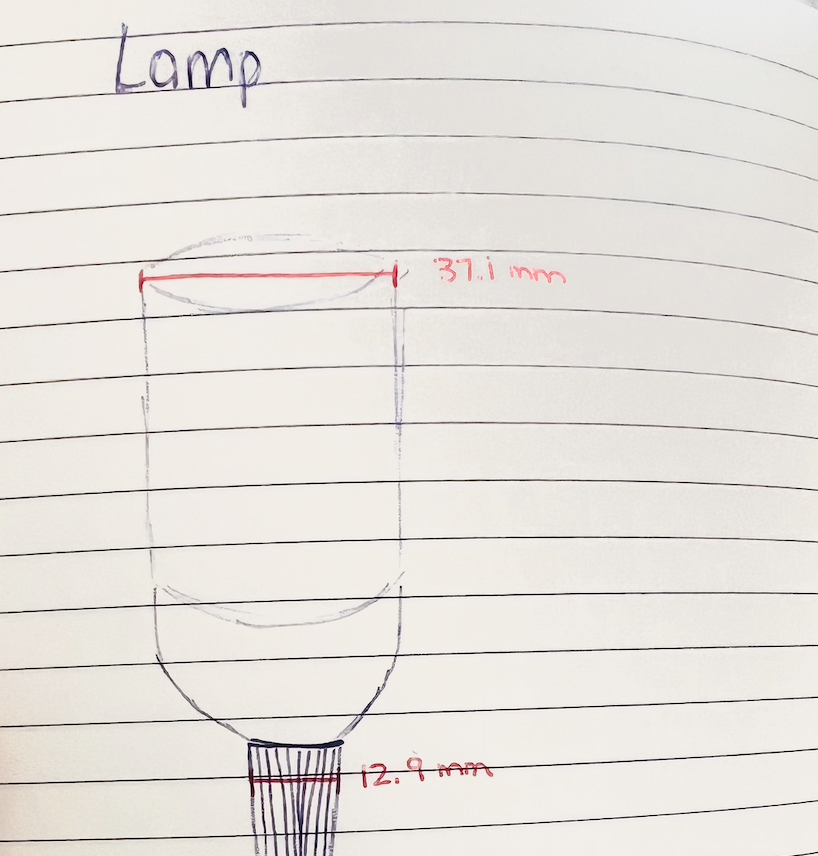 Lamp
37.1 mm
12.9 mm